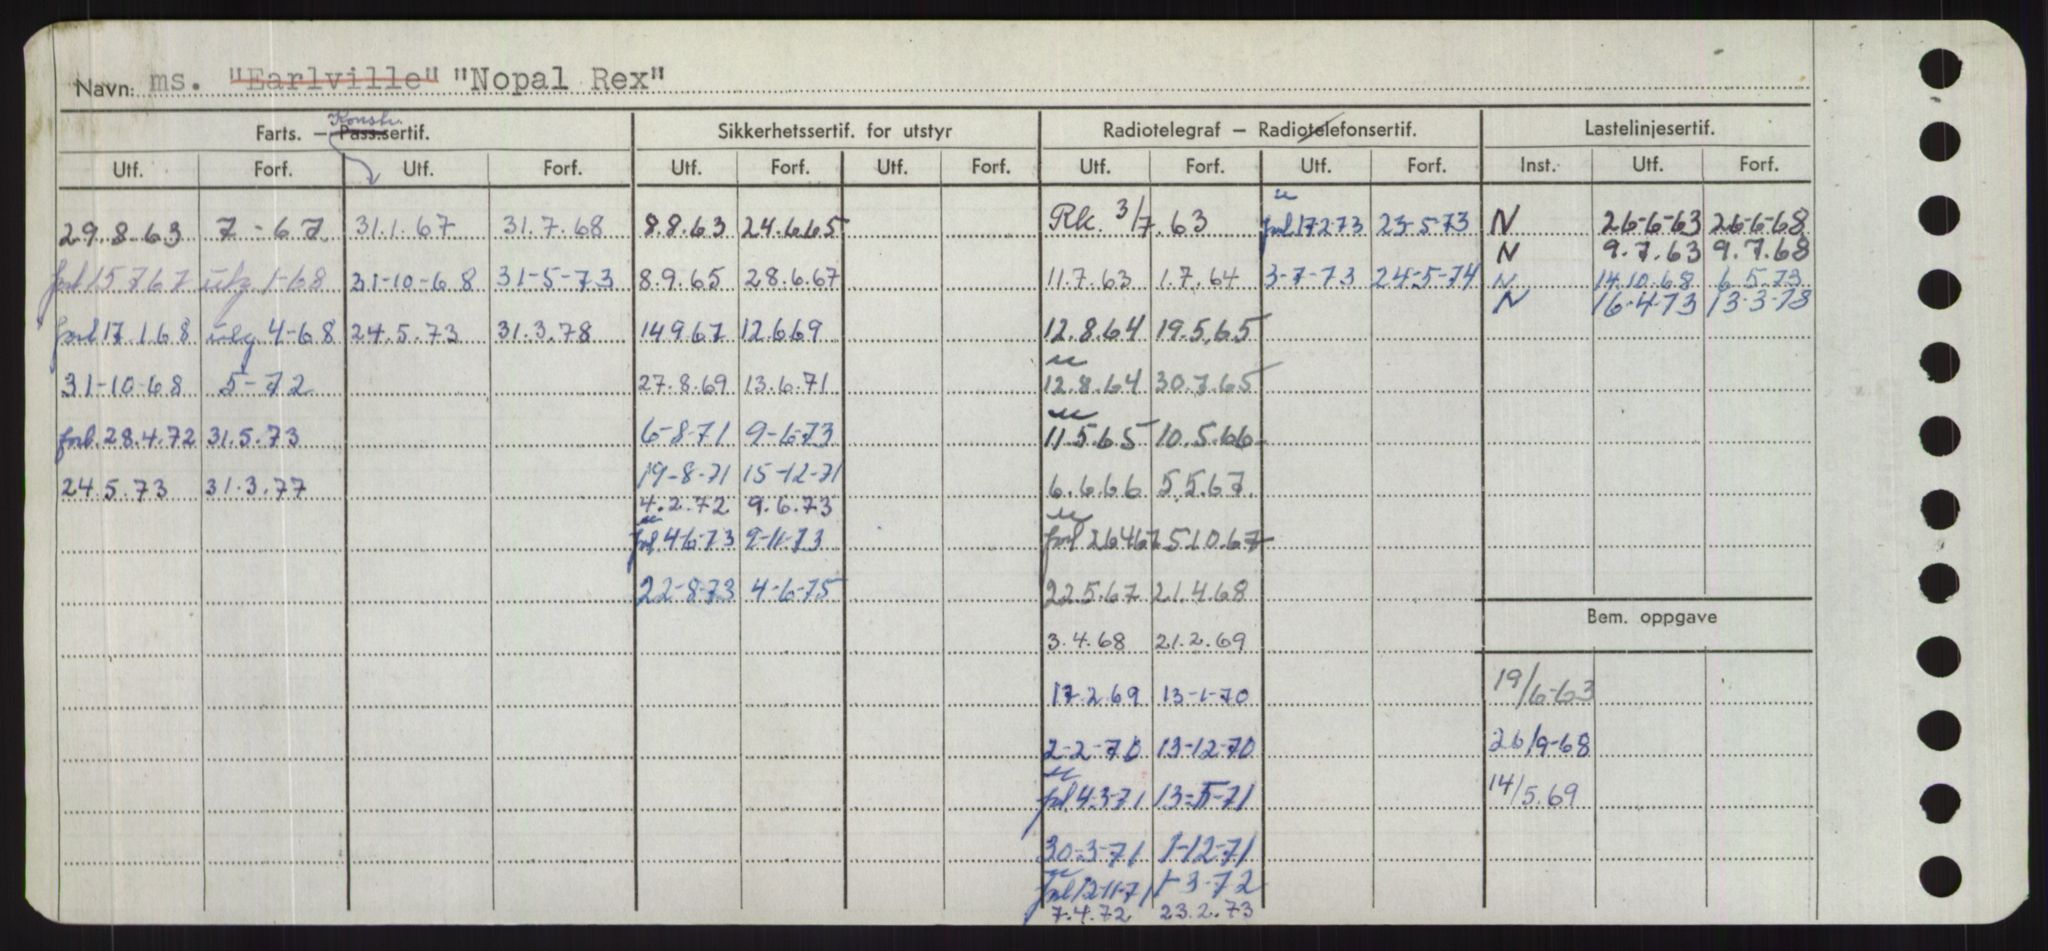 Navn: ms. "Earlville" "Nopal Rex"
Konstr.
Farts. — Pass.sertif. Sikkerhetssertif. for utstyr Radiotelegraf — Radiotelefonsertif. Lastelinjesertif.
Utf. Forf. Utf. Forf. Utf. Forf. Utf. Forf. Utf. Forf. Utf. Forf. Inst. Utf. Forf.
29.8.63 7-67 31.1.67 31.7.68 8.8.63 24.6.65 Rk. 3/7.63 forl 17-2-73 23-5-73 N 26-6-63 26-6-68
N 9.7.63 9.7.68
forl 15.7.67 utg 1-68 31-10-68 31-5-73 8.9.65 28.6.67 11.7.63 1.7.64 3-7-73 24-5-74 N 14.10.68 6.5.73
N 16-4-73 13-3-78
forl 17.1.68 utg. 4-68 24.5.73 31.3.78 14.9.67 12.6.69 12.8.64 19.5.65
31-10-68 5-72 27.8.69 13.6.71 12.8.64 30.7.65
forl. 28.4.72 31.5.73 6-8-71 9-6-73 11.5.65 10.5.66
19-8-71 15-12-71
24.5.73 31.3.77 4.2.72 9.6.73 6.6.66 5.5.67
forl 4-6-73 9-11-73 forl 26.4.67 5.10.67
22-8-73 4-6-75 22.5.67 21.4.68
Bem. oppgave
3.4.68 21.2.69
17.2.69 13-1-70 19/6-63
2-2-70 13-12-70 26/9-68
forl 4-3-71 13-5-71 14/5.69
30-3-71 1-12-71
forl 12-11-71 1-3-72
7.4.72 23.2.73